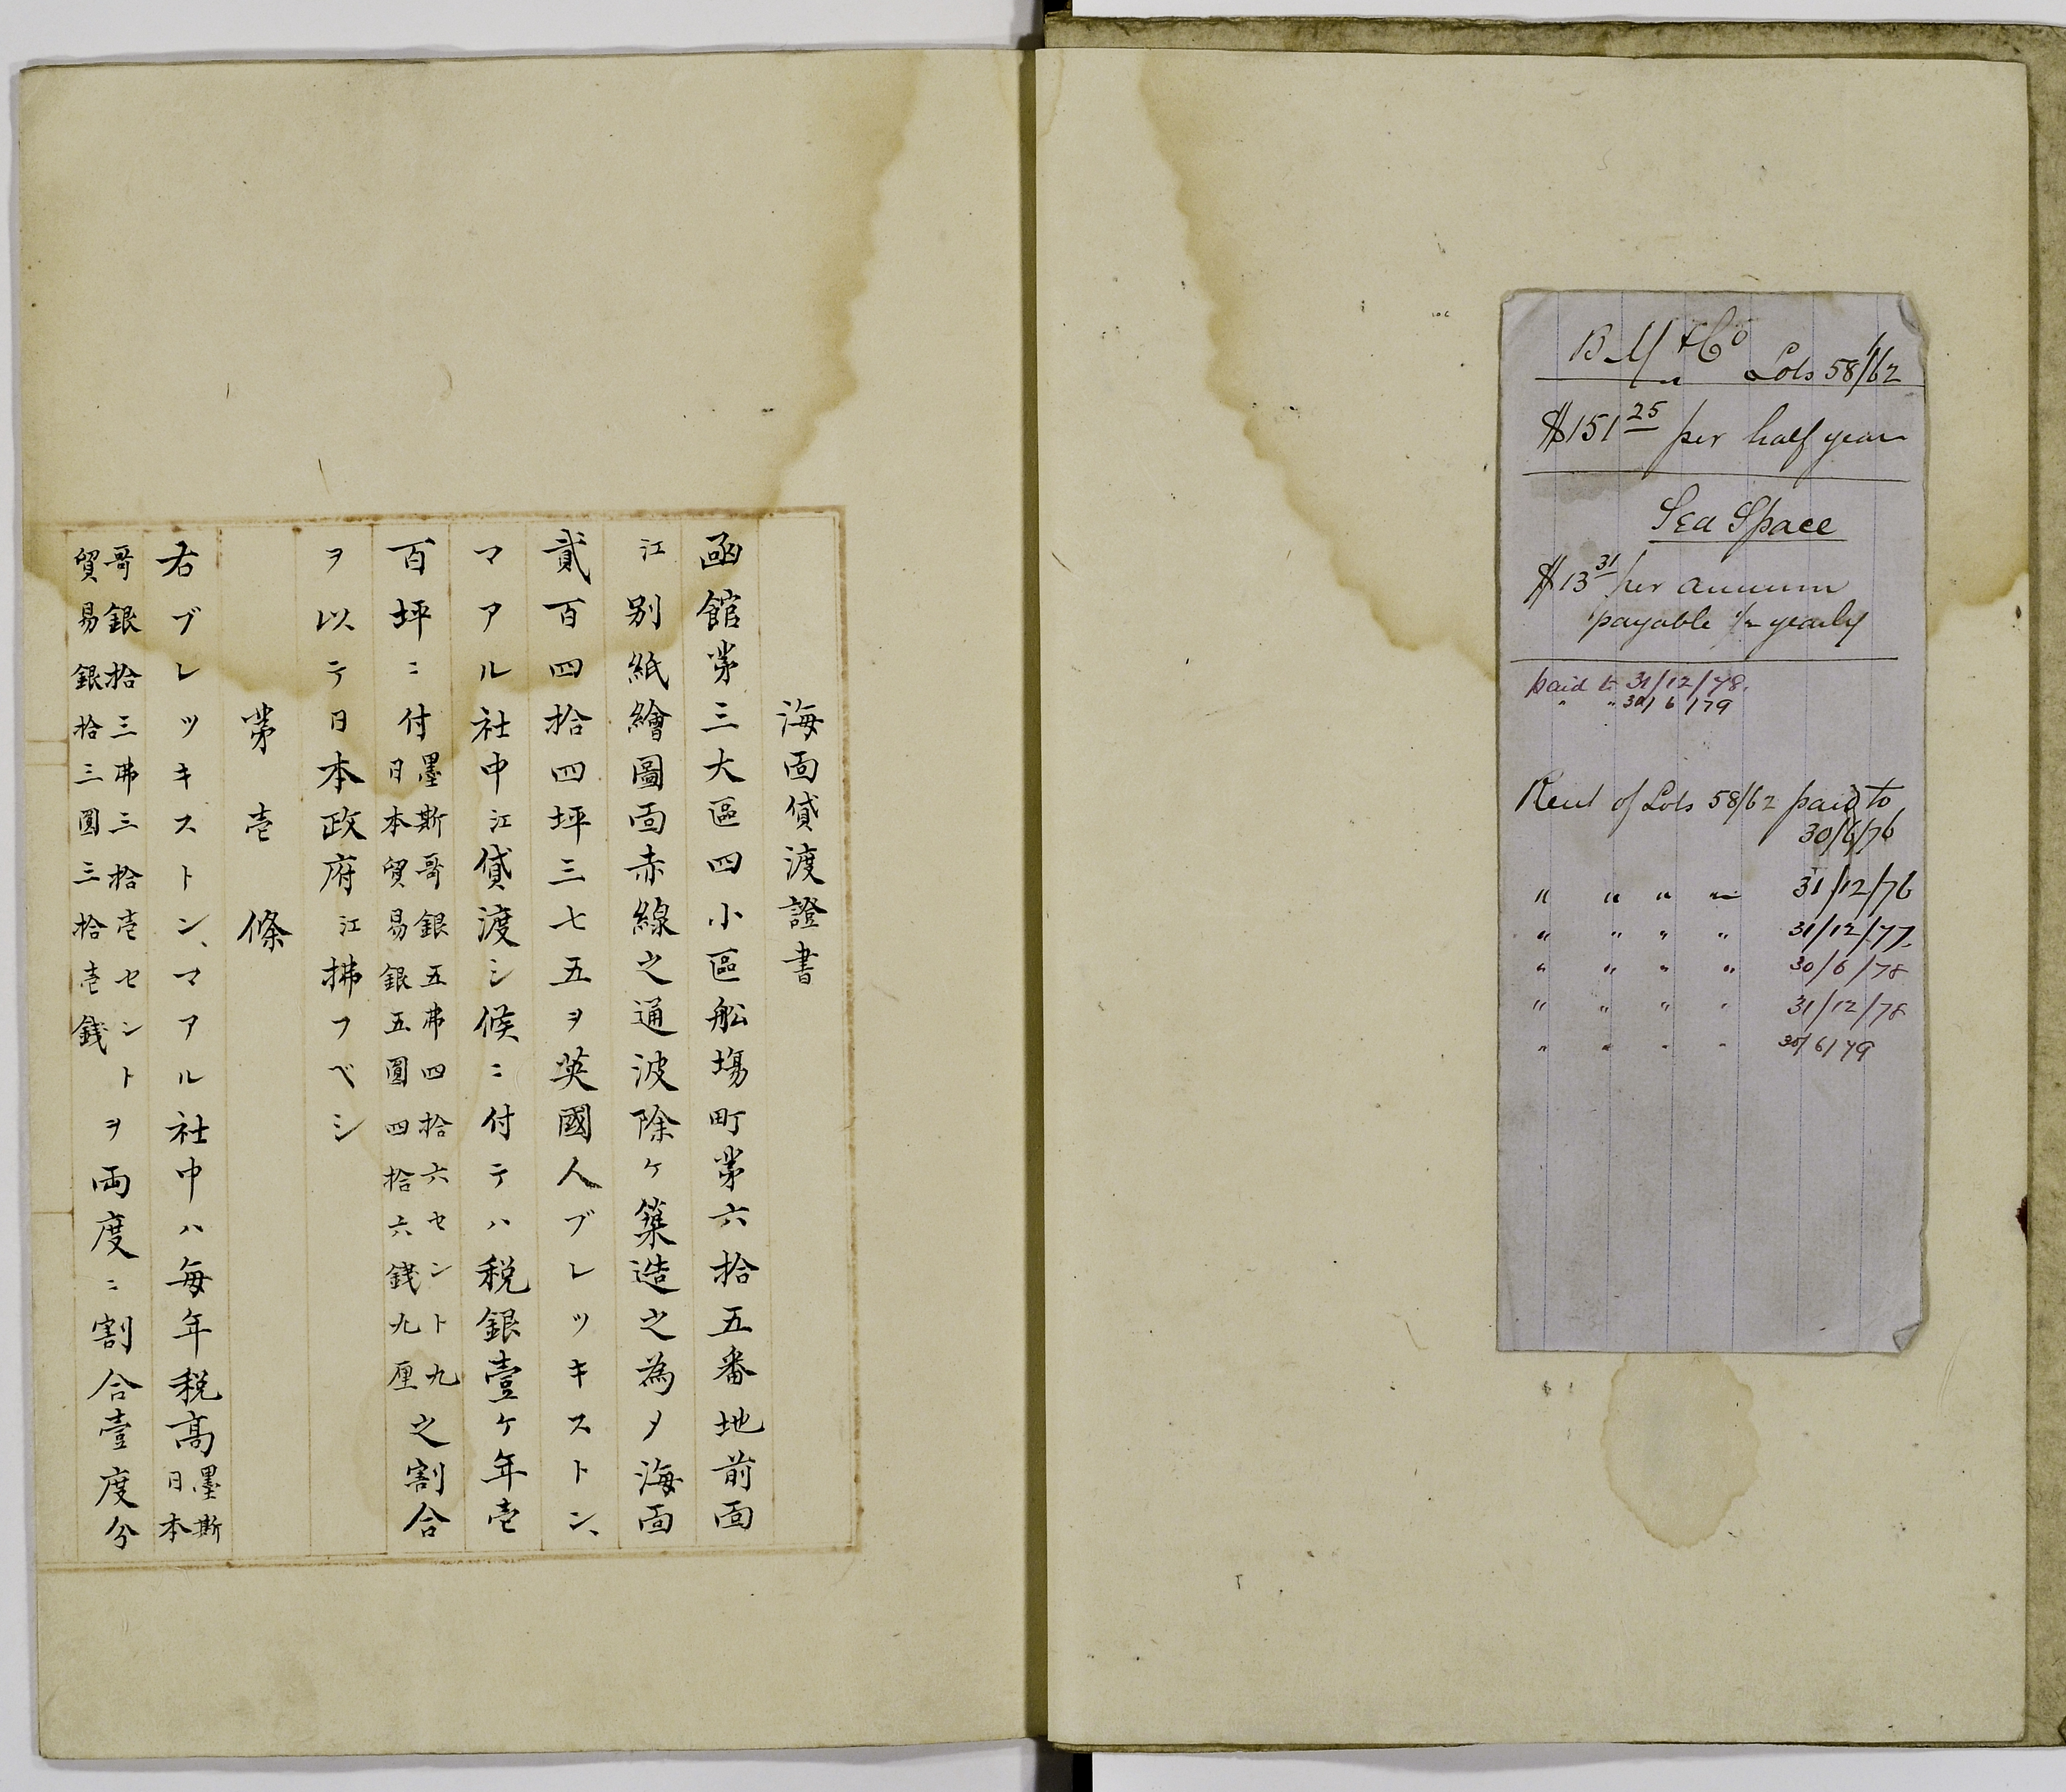 B M & Co Lots 58/62
$151 25 per half year
Sea Space
$13 31 per annum
payable 1/2 yearly
paid to 31/12/78.
" " 30/6/79
Rent of Lots 58/62 paid to
30/6/76
" " " " 31/12/76
" " " " 31/12/77
" " " " 30/6/78
" " " " 31/12/78
" " " " 30/6/79
海面貸渡證書
函館苐三大區四小區舩塲町苐六拾五番地前面
江別紙繪圖面赤線之通波除ケ築造之為メ海面
貳百四拾四坪三七五ヲ英國人ブレッキストン、
マアル社中江貸渡シ候ニ付テハ税銀壹ケ年壱
百坪ニ付墨斯哥銀五弗四拾六セント九
日本貿易銀五圓四拾六錢九厘之割合
ヲ以テ日本政府江拂フベシ
苐壱條
右ブレッキストン、マアル社中ハ毎年税高墨斯
日本
哥銀拾三弗三拾壱セント
貿易銀拾三圓三拾壱錢ヲ両度ニ割合壹度分